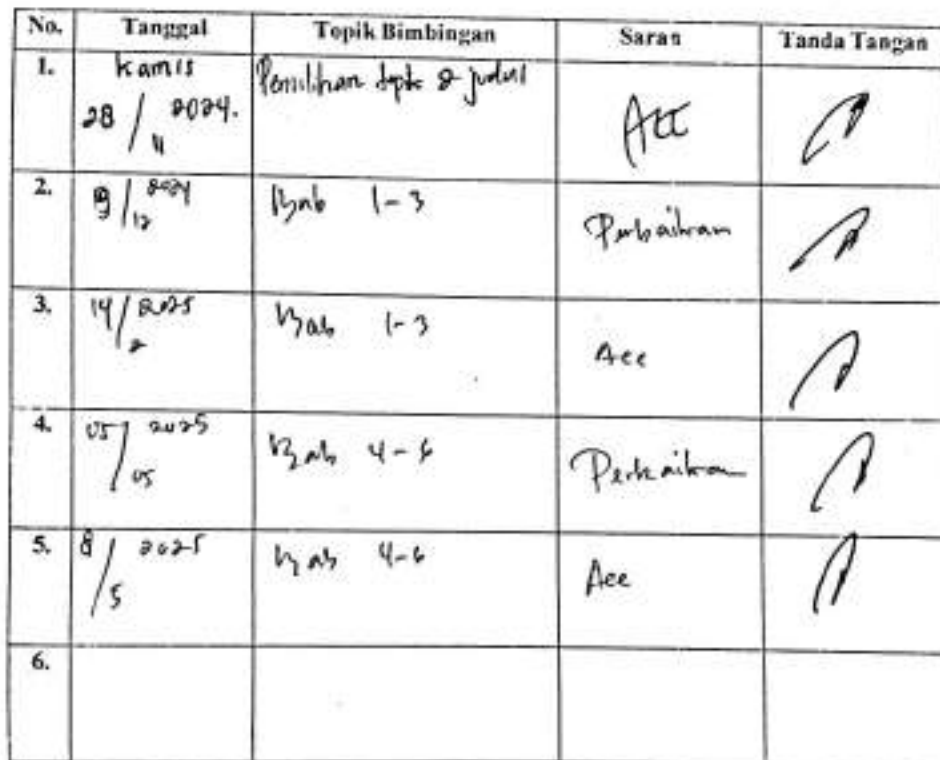 No. Tanggal Topik Bimbingan Saran Tanda Tangan
1. Kamis 28/11 2024. Pemilihan topik & judul Acc
2. 9/12 2024 Bab 1-3 Perbaikan
3. 14/2 2025 Bab 1-3 Acc
4. 05/05 2025 Bab 4-6 Perbaikan
5. 8/5 2025 Bab 4-6 Acc
6.